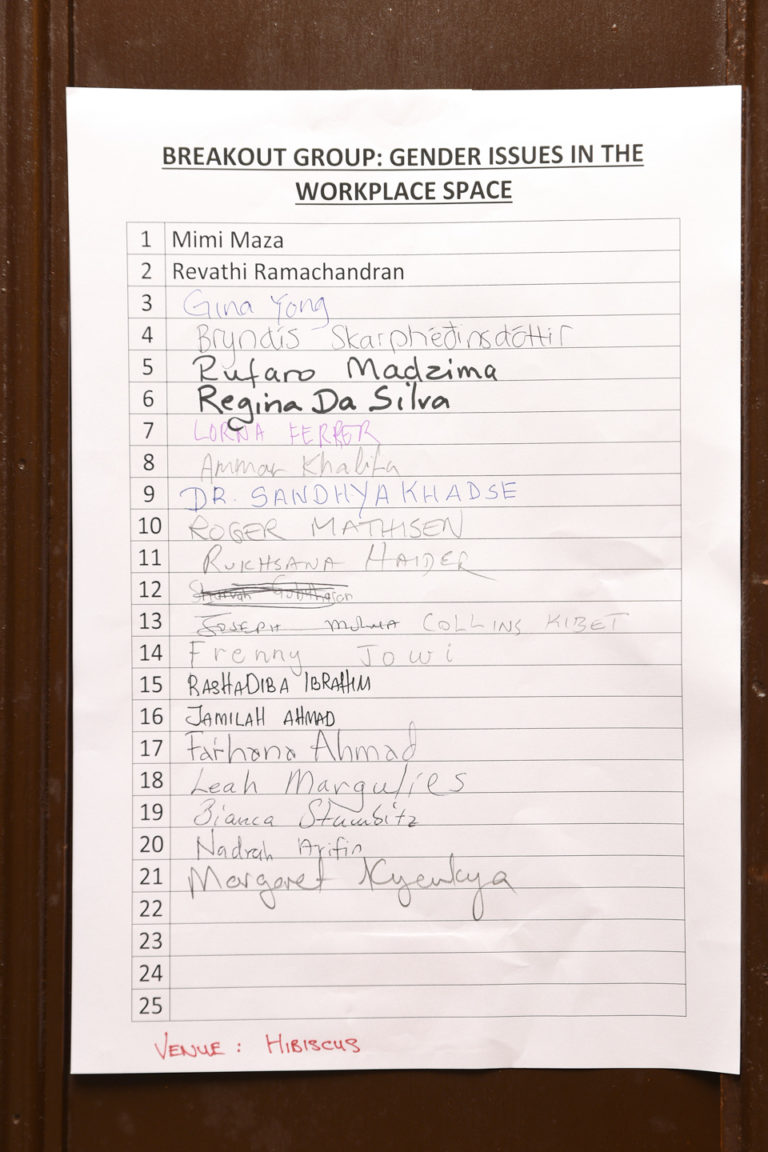 BREAKOUT GROUP: GENDER ISSUES IN THE
WORKPLACE SPACE
1 Mimi Maza
2 Revathi Ramachandran
3 Gina Yong
4 Bryndís Skarphéðinsdóttir
5 Rufaro Madzima
6 Regina Da Silva
7 LORNA FERRER
8 Ammar Khalifa
9 DR. SANDHYA KHADSE
10 ROGER MATHISEN
11 RUKHSANA HAIDER
12
13 JOSEPH COLLINS KIBET
14 Frenny Jowi
15 RASHADIBA IBRAHIM
16 JAMILAH AHMAD
17 Farhana Ahmad
18 Leah Margulies
19 Bianca Stumbitz
20 Nadrah Arifin
21 Margaret Kyenkya
22
23
24
25
VENUE : HIBISCUS